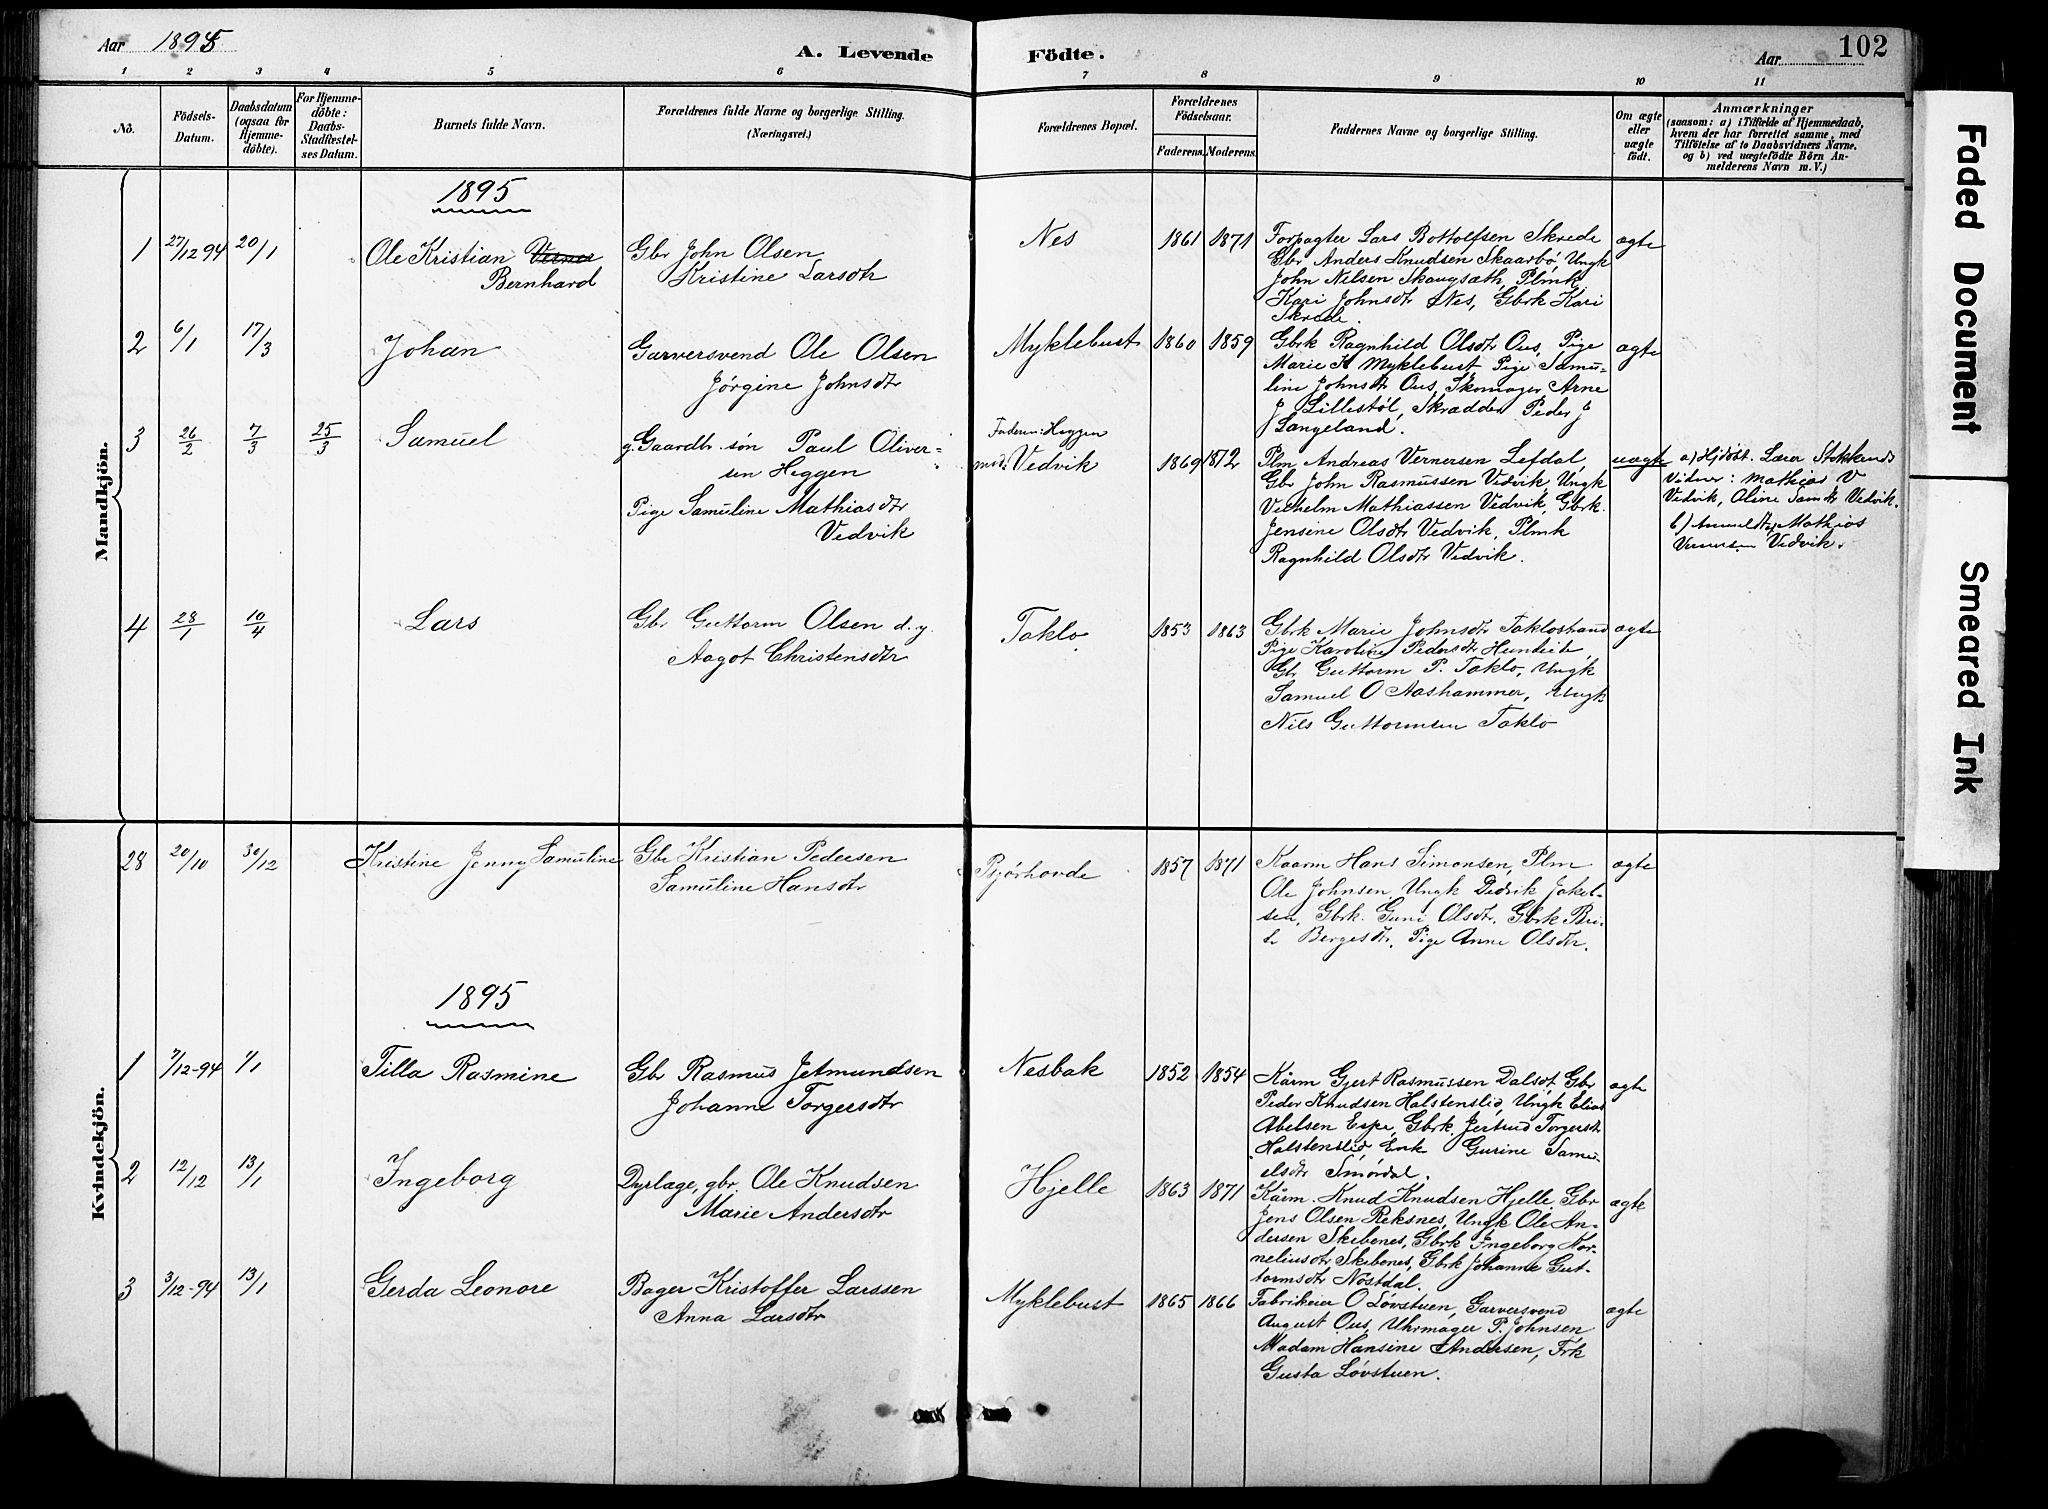 Aar 1895
A. Levende Födte.
Aar 102
1 2 3 4 5 6 7 8 9 10 11
No.
Födsels-Datum.
Daabsdatum (ogsaa for Hjemmedöbte).
For Hjemmedöbte: Daabs-Stadfæstelses Datum.
Barnets fulde Navn.
Forældrenes fulde Navne og borgerlige Stilling.
(Næringsvei.)
Forældrenes Bopæl.
Forældrenes Födselsaar.
Faderens. Moderens.
Faddernes Navne og borgerlige Stilling.
Om ægte eller uægte födt.
Anmærkninger
(saasom: a) i Tilfælde af Hjemmedaab,
hvem der har forrettet samme, med
Tilföielse af to Daabsvidners Navne,
og b) ved uægtefödte Börn An-
melderens Navn m. V.)
Mandkjön.
1895
1 27/12 94 20/1 Ole Kristian Verner Bernhard
Gbr John Olsen
Kristine Larsdtr
Nes 1861 1871
Forpagter Lars Bottolfsen Skrede
Gbr Anders Knudsen Skaarbø, Ungk
John Nilsen Skaugsæth, Plmk
Kari Johnsdtr Nes, Gbrk Kari
Skrede
ægte
2 6/1 17/3 Johan
Garversvend Ole Olsen
Jørgine Johnsdtr
Myklebust 1860 1859
Gbrk Ragnhild Olsdtr Ous, Pige
Marie K Myklebust, Pige Samu-
line Johnsdtr Ous, Skomager Arne
J Lillestøl, Skrædder Peder J
Langeland.
ægte
3 26/2 7/3 25/3 Samuel
g. Gaardbr. søn Paul Oliver-
sen Heggen
Pige Samuline Mathiasdtr
Vedvik
Faderen: Heggen
mod: Vedvik 1869 1872
Plm Andreas Vernersen Lefdal,
Gbr John Rasmussen Vedvik, Ungk
Vilhelm Mathiassen Vedvik, Gbrk.
Jensine Olsdtr Vedvik, Plmk
Ragnhild Olsdtr Vedvik.
uægte
a) Hjdøbt. Lærer
Vidner: Mathias V
Vedvik, Oline Samdtr Vedvik.
b) Anmeldt af Mathias
Vernersen Vedvik.
4 28/1 10/4 Lars
Gbr Guttorm Olsen d. y.
Aagot Christensdtr
Taklo 1853 1863
Gbrk Marie Johnsdtr Taklostrand
Pige Karoline Pedersdtr Hundeide
Gbr Guttorm P. Taklo, Ungk
Samuel O Aashammer, Ungk
Nils Guttormsen Taklo
ægte
Kvindekjön.
28 20/10 30/12 Kristine Jenny Samuline
Gbr Kristian Pedersen
Samuline Hansdtr
Bjørhovde 1857 1871
Kaarm Hans Simonsen, Plm
Ole Johnsen, Ungk Didrik Jakob-
sen, Gbrk. Guni Olsdtr. Gbrk Bri-
te Bergesdtr, Pige Anne Olsdtr.
ægte
1895
1 7/12-94 1/1 Tilla Rasmine
Gbr Rasmus Jetmundsen
Johanne Torgersdtr
Nesbak 1852 1854
Kårm Gjert Rasmussen Dalsdt, Gbr
Peder Knudsen Halstenslid, Ungk Elias
Abelsen Espe, Gbrk. Jertrud Torgersdtr
Halstenslid, Enk Gurine Samu-
elsdtr Smørdal.
ægte
2 12/12 13/1 Ingeborg
Dyrlæge, gbr. Ole Knudsen
Marie Andersdtr
Hjelle 1863 1871
Kårm. Knud Knudsen Hjelle, Gbr
Jens Olsen Reksnes, Ungk Ole An-
dersen Skibenes, Gbrk Ingeborg Kor-
neliusdtr Skibenes, Gbrk Johanne Gut-
tormsdtr Nøstdal.
ægte
3 3/12-94 13/1 Gerda Leonore
Bager Kristoffer Larssen
Anna Larsdtr
Myklebust 1865 1866
Fabrikeier O Løvstuen, Garversvend
August Ous, Uhrmager P. Johnsen
Madam Hansine Andersen, Frk
Gusta Løvstuen.
ægte
Faded Document
Smeared Ink